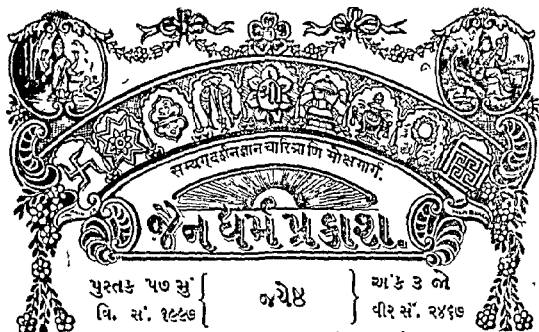 श्री
सम्यग्दर्शनज्ञानचारित्राणि मोक्षमार्गः
જૈન ધર્મ પ્રકાશ.
પુસ્તક ૫૭ મું
વિ. સં. ૧૯૯૭
જ્યેષ્ઠ
અંક ૩ જો
વીર સં. ૨૪૬૭